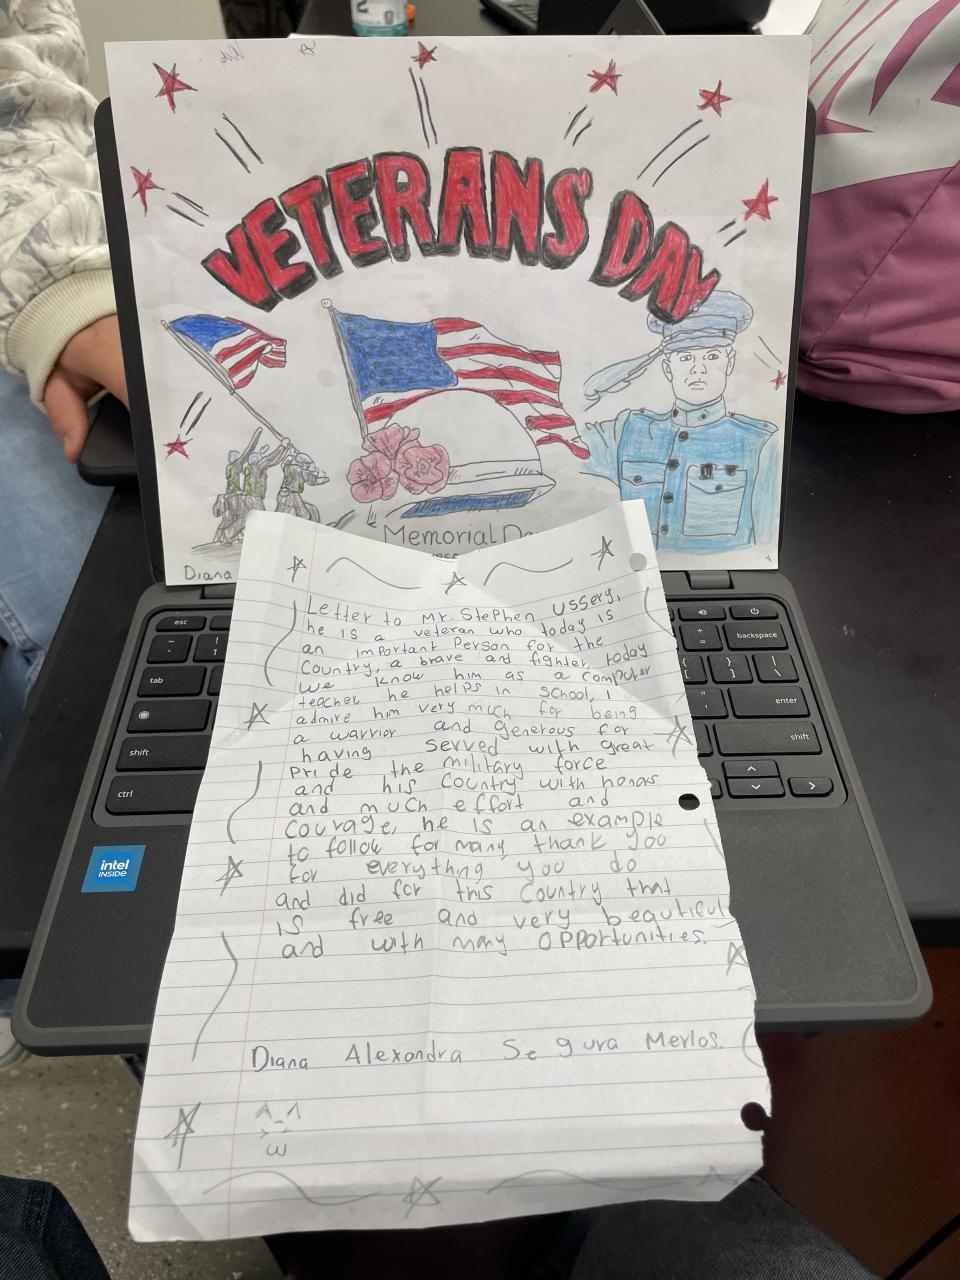 VETERANS DAY
Memorial Da
Diana
Letter to Mr. Stephen Ussery,
he is a veteran who today is
an important Person for the
Country, a brave and fighter, today
we know him as a computer
teacher he helps in school, I
admire him very much for being
a warrior and generous for
having served with great
Pride the military force
and his Country with honor
and much effort and
courage, he is an example
to follow for many thank you
for everything you do
and did for this Country that
is free and very beautiful
and with many opportunities.
Diana Alexandra Segura Merlos.
esc
tab
shift
ctrl
backspace
enter
shift
intel
INSIDE